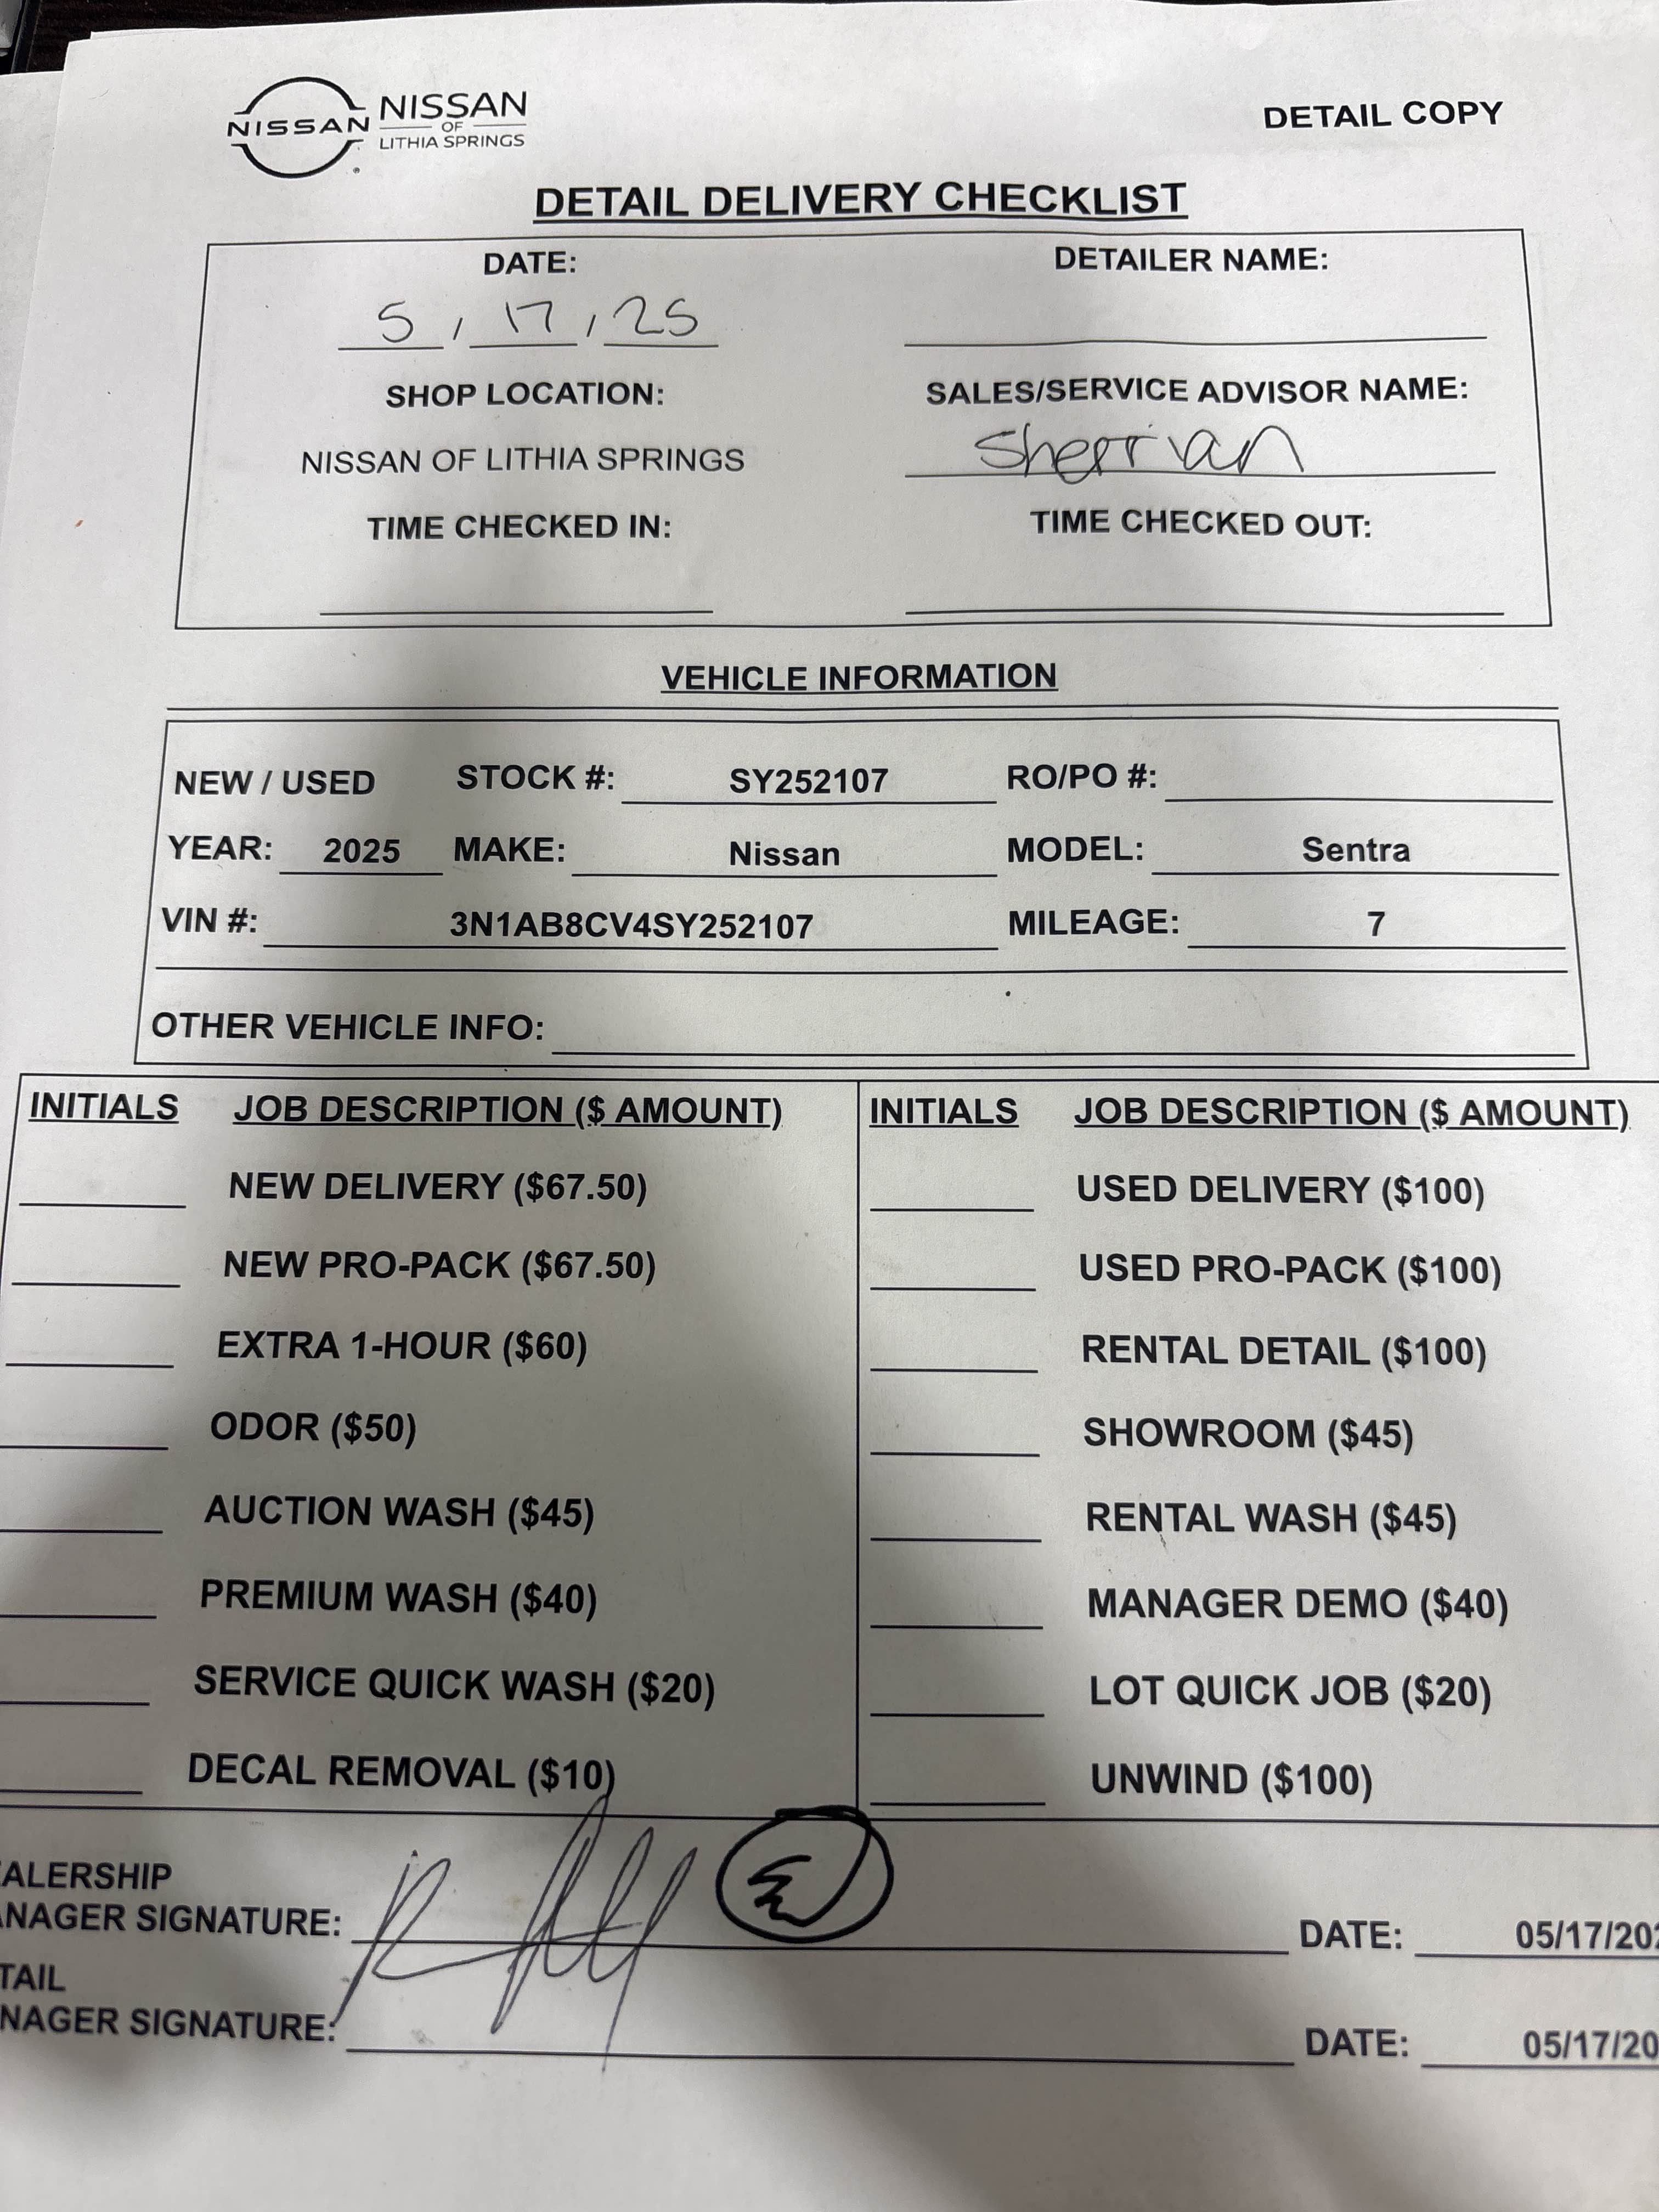 NISSAN NISSAN OF LITHIA SPRINGS
DETAIL COPY
DETAIL DELIVERY CHECKLIST
DATE: DETAILER NAME:
5 / 17 / 25
SHOP LOCATION: SALES/SERVICE ADVISOR NAME:
NISSAN OF LITHIA SPRINGS Sherrian
TIME CHECKED IN: TIME CHECKED OUT:
VEHICLE INFORMATION
NEW / USED STOCK #: SY252107 RO/PO #:
YEAR: 2025 MAKE: Nissan MODEL: Sentra
VIN #: 3N1AB8CV4SY252107 MILEAGE: 7
OTHER VEHICLE INFO:
INITIALS JOB DESCRIPTION ($ AMOUNT) INITIALS JOB DESCRIPTION ($ AMOUNT)
NEW DELIVERY ($67.50) USED DELIVERY ($100)
NEW PRO-PACK ($67.50) USED PRO-PACK ($100)
EXTRA 1-HOUR ($60) RENTAL DETAIL ($100)
ODOR ($50) SHOWROOM ($45)
AUCTION WASH ($45) RENTAL WASH ($45)
PREMIUM WASH ($40) MANAGER DEMO ($40)
SERVICE QUICK WASH ($20) LOT QUICK JOB ($20)
DECAL REMOVAL ($10) UNWIND ($100)
ALERSHIP
NAGER SIGNATURE: DATE: 05/17/202
TAIL
NAGER SIGNATURE: DATE: 05/17/20